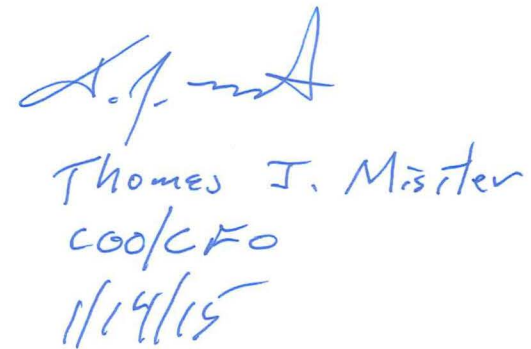 Thomas J. Misiter
COO/CFO
1/14/15